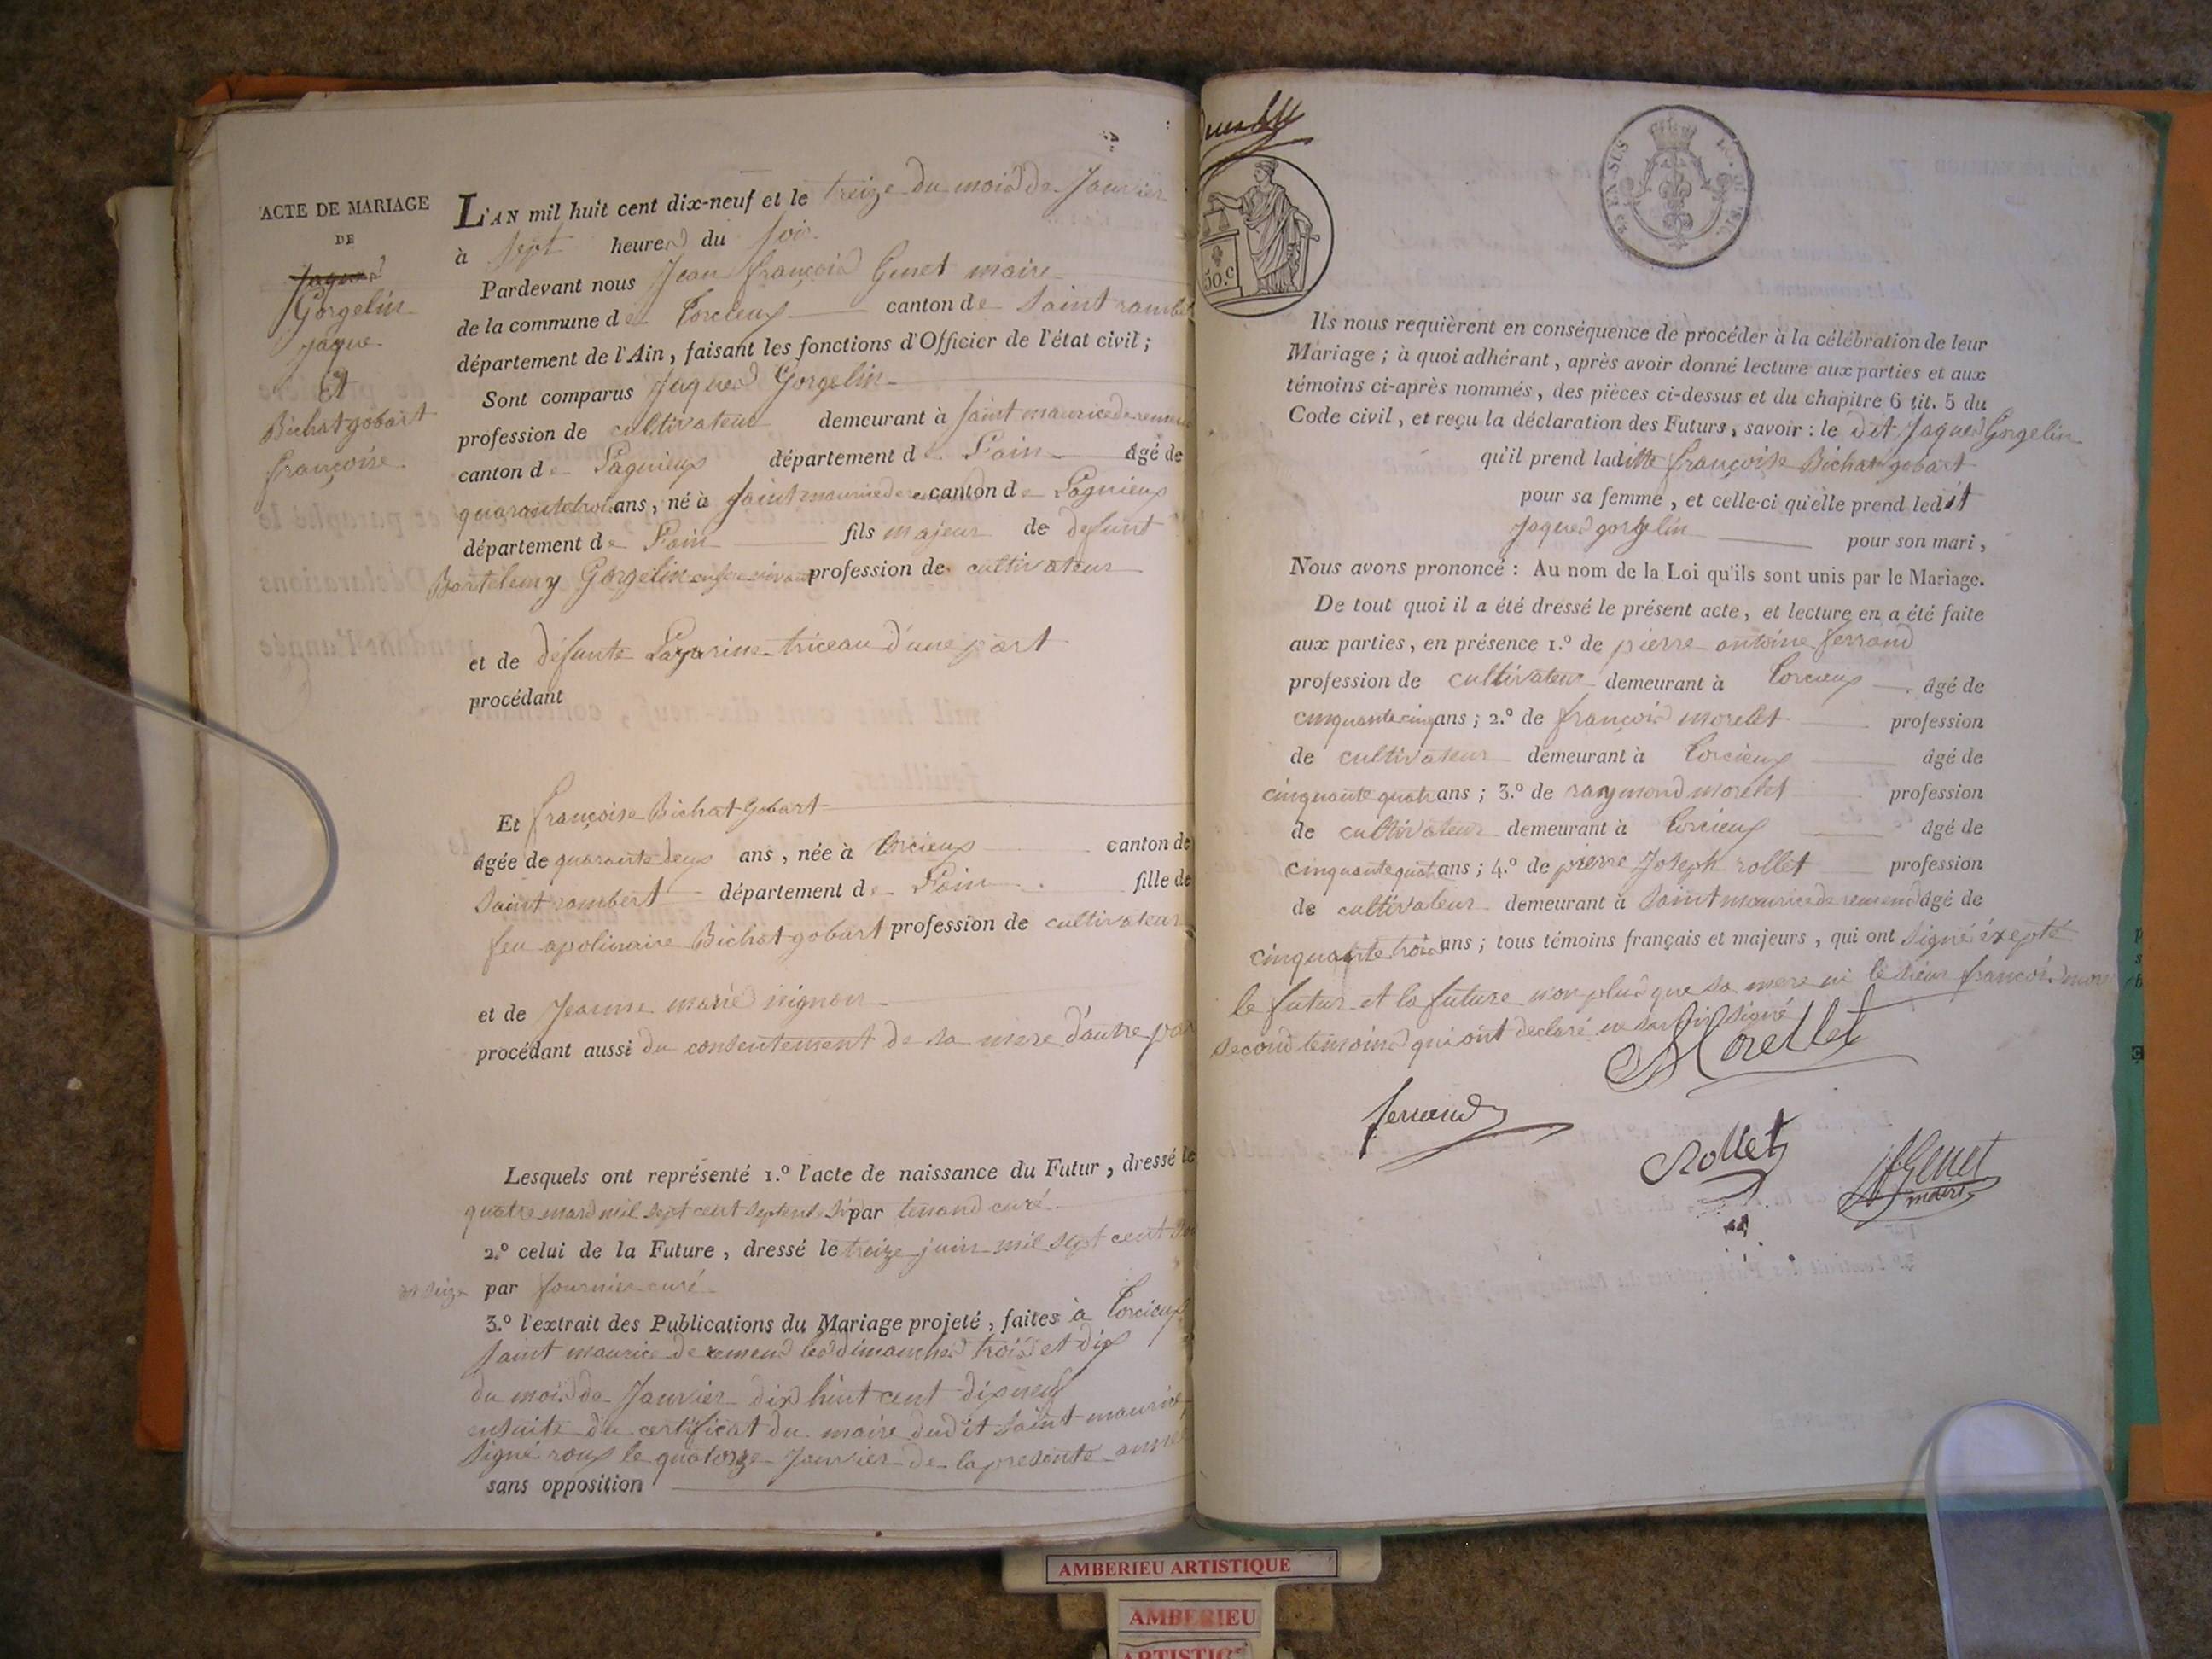 ACTE DE MARIAGE
DE
Jaques
Gorgelin
Jaque
Et
Bichat gobart
françoise
L'AN mil huit cent dix-neuf et le treize du mois de Janvier
à sept heures du soir
Pardevant nous Jean françois Genet maire
de la commune de Torcieux canton de Saint rambert
département de l'Ain, faisant les fonctions d'Officier de l'état civil;
Sont comparus Jaques Gorgelin
profession de cultivateur demeurant à saint maurice de remens
canton de Lagnieux département de L'ain âgé de
quarante trois ans, né à saint maurice de canton de Lagnieux
département de L'ain fils majeur de défunt
Bartelemy Gorgelin profession de cultivateur
et de défunte Lazarine triceau d'une part
procédant
Et françoise Bichat Gobart
âgée de quarante deux ans, née à Torcieux canton de
Saint rambert département de L'ain fille de
feu apolinaire Bichat gobart profession de cultivateur
et de Jeanne marie
procédant aussi du consentement de sa mere d'autre part
Lesquels ont représenté 1.º l'acte de naissance du Futur, dressé le
quatre mars mil sept cent par tenand curé
2.º celui de la Future, dressé le treize juin mil sept cent
et seize par fournier curé
3.º l'extrait des Publications du Mariage projeté, faites à Torcieux
saint maurice de remens les dimanches trois et dix
du mois de Janvier dix huit cent dix neuf
ensuite du certificat du maire dudit saint maurice
signé roux le quatorze Janvier de la presente année
sans opposition
50.c
EN SUS
Ils nous requièrent en conséquence de procéder à la célébration de leur
Mariage; à quoi adhérant, après avoir donné lecture aux parties et aux
témoins ci-après nommés, des pièces ci-dessus et du chapitre 6 tit. 5 du
Code civil, et reçu la déclaration des Futurs, savoir : le dit Jaques Gorgelin
qu'il prend laditte françoise Bichat gobart
pour sa femme, et celle-ci qu'elle prend ledit
Jaques gorgelin pour son mari,
Nous avons prononcé : Au nom de la Loi qu'ils sont unis par le Mariage.
De tout quoi il a été dressé le présent acte, et lecture en a été faite
aux parties, en présence 1.º de pierre antoine ferrand
profession de cultivateur demeurant à Torcieux âgé de
cinquante cinq ans; 2.º de françois morelet profession
de cultivateur demeurant à Torcieux âgé de
cinquante quatre ans; 3.º de raymond morelet profession
de cultivateur demeurant à Torcieux âgé de
cinquante quatre ans; 4.º de pierre Joseph rollet profession
de cultivateur demeurant à Saint maurice de remens âgé de
cinquante trois ans; tous témoins français et majeurs, qui ont signé éxepté
le futur et la future non plus que sa mere ni le sieur francois
second temoins qui ont declaré ne savoir signé
Morellet
ferrand
Rollet
Genet
maire
AMBERIEU ARTISTIQUE
AMBERIEU
ARTISTIQ